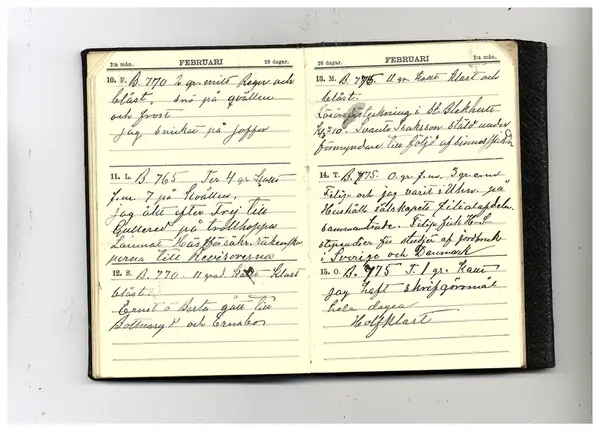 2:a mån. FEBRUARI 28 dagar.
10. F. B. 770 2 gr. mitt Regn och
blåst, snö på qvällen
och frost
jag snickra på joffer
11. L. B. 765 Ter 4 gr Kallt
f.m. 7 på Kvällen.
Jag åkt efter Troj till
Gullered på trollhoppa
Lämnat
till Revisorerna
12. S. B. 770 11 grad. Kallt Klart
blåst.
Ernst o Berta gått till
och Ernabo
2:a mån. FEBRUARI 28 dagar.
13. M. B. 775. 11 gr. Kallt Klart och
blåst.
i St. Blekhult
Kl 10. Svante Isaksson ställd under
förmyndare till följd af sinnessjukd
14. T. B. 775 0. gr. f.m. 3 gr. e.m
Filip och jag varit i Ulhn. på
Hushålls sällskapets filialafdeln.
sammanträde. Filip fick H. S.
stipendier för studier af jordbruk
i Sverige och Danmark
15. O. B. 775 T. 1 gr. Kallt
jag haft skrifgöromål
hela dagen
Holfklart